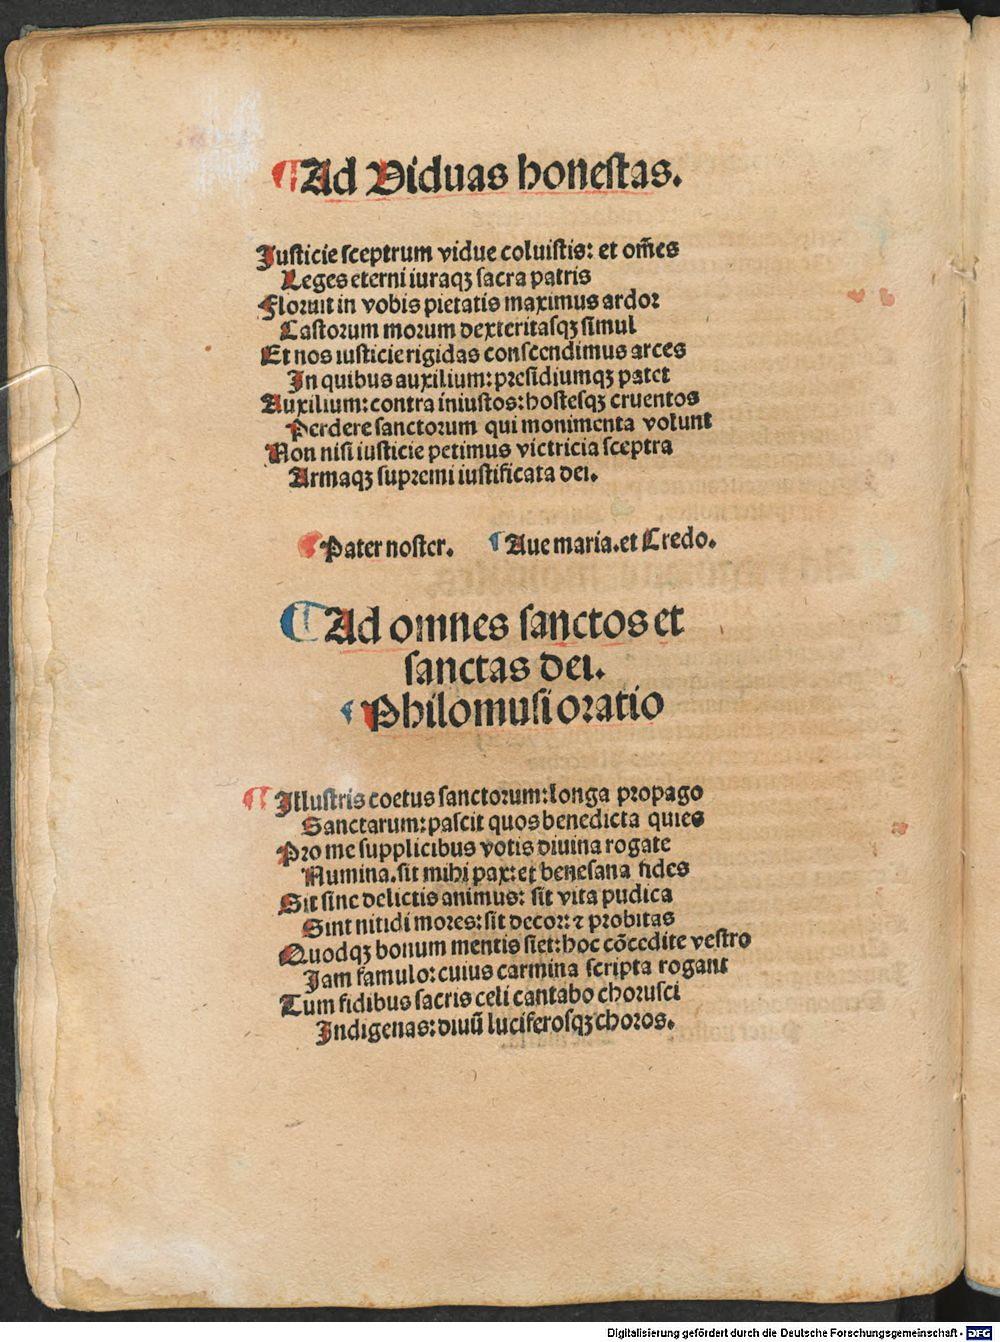 ¶Ad Viduas honestas.
Justicie sceptrum vidue coluistis: et om̃es
Leges eterni iuraqꝫ sacra patris
Floruit in vobis pietatis maximus ardor
Castorum morum dexteritasqꝫ simul
Et nos iusticie rigidas conscendimus arces
In quibus auxilium: presidiumqꝫ patet
Auxilium: contra iniustos: hostesqꝫ cruentos
Perdere sanctorum qui monimenta volunt
Non nisi iusticie petimus victricia sceptra
Armaqꝫ supremi iustificata dei.
¶Pater noster. ¶Aue maria. et Credo.
¶Ad omnes sanctos et
sanctas dei.
¶Philomusi oratio
¶Illustris coetus sanctorum: longa propago
Sanctarum: pascit quos benedicta quies
Pro me supplicibus votis diuina rogate
Numina. sit mihi pax: et benesana fides
Sit sine delictis animus: sit vita pudica
Sint nitidi mores: sit decor: ⁊ probitas
Quodqꝫ bonum mentis siet: hoc cōcedite vestro
Jam famulo: cuius carmina scripta rogant
Tum fidibus sacris celi cantabo chorusci
Indigenas: diuū luciferosqꝫ choros.
Digitalisierung gefördert durch die Deutsche Forschungsgemeinschaft - DFG